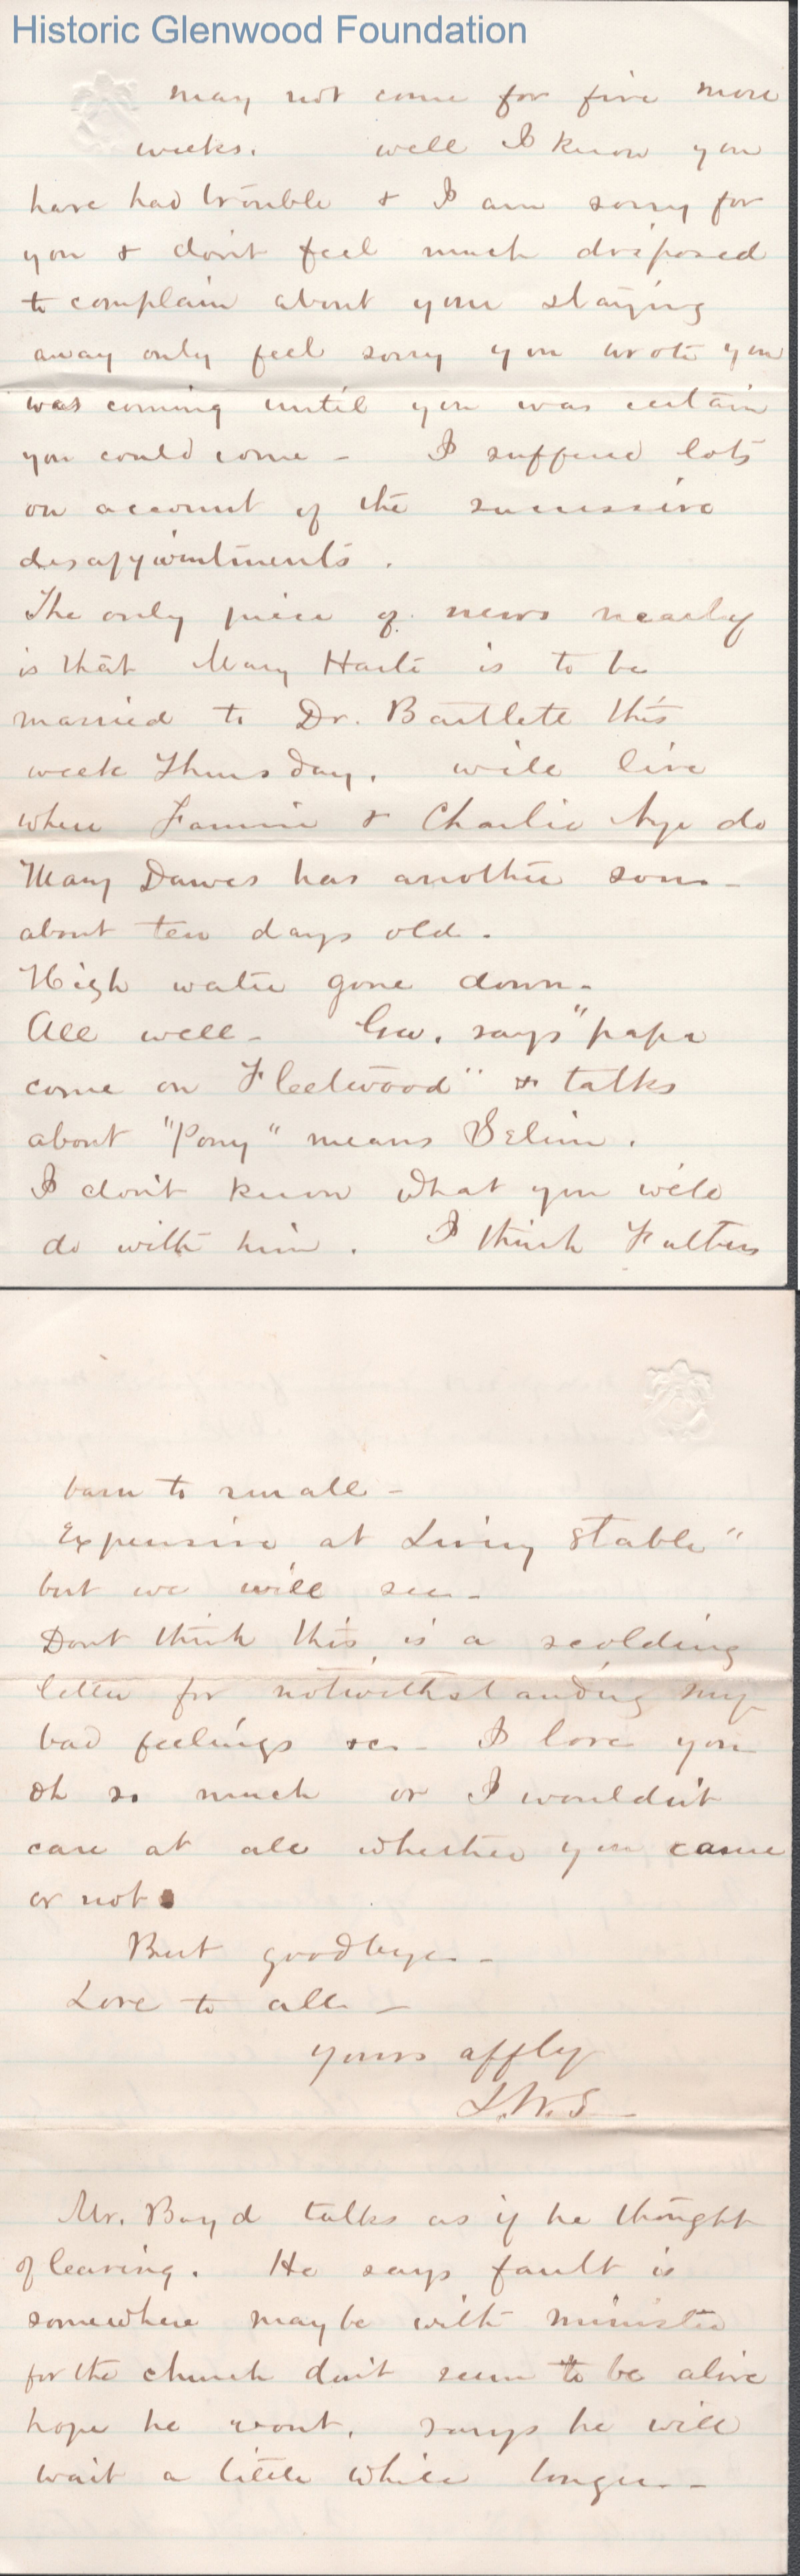 Historic Glenwood Foundation
may not come for five more
weeks. well I know you
have had trouble & I am sorry for
you & don't feel much disposed
to complain about your staying
away only feel sorry you wrote you
was coming until you was certain
you could come - I suffered lots
on account of the successive
disappointments.
The only piece of news nearly
is that Mary Harte is to be
married to Dr. Bartlett this
week Thursday. will live
where Fannie & Charlie Nye do
Mary Dawes has another son -
about ten days old.
High water gone down -
All well - Geo. says "papa
come on Fleetwood" & talks
about "Pony" means Selim.
I don't know what you will
do with him. I think Fathers
barn to small -
Expensive at Livery Stable"
but we will see -
Dont think this is a scolding
letter for notwithstanding my
bad feelings &c - I love you
oh so much or I wouldn't
care at all whether you came
or not
But goodbye -
Love to all -
yours affly
L.W.S -
Mr. Boyd talks as if he thought
of leaving. He says fault is
somewhere maybe with minister
for the church don't seem to be alive
hope he wont. says he will
wait a little while longer -